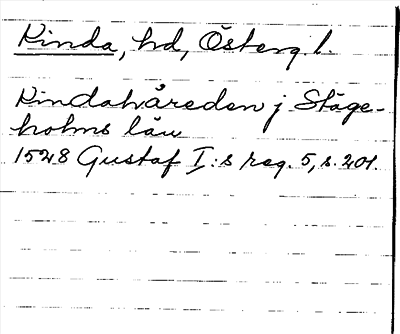 Kinda, hd, Österg. l.
Kindahåreden j Stäge-
holms län
1528 Gustaf I:s reg. 5, s. 201.